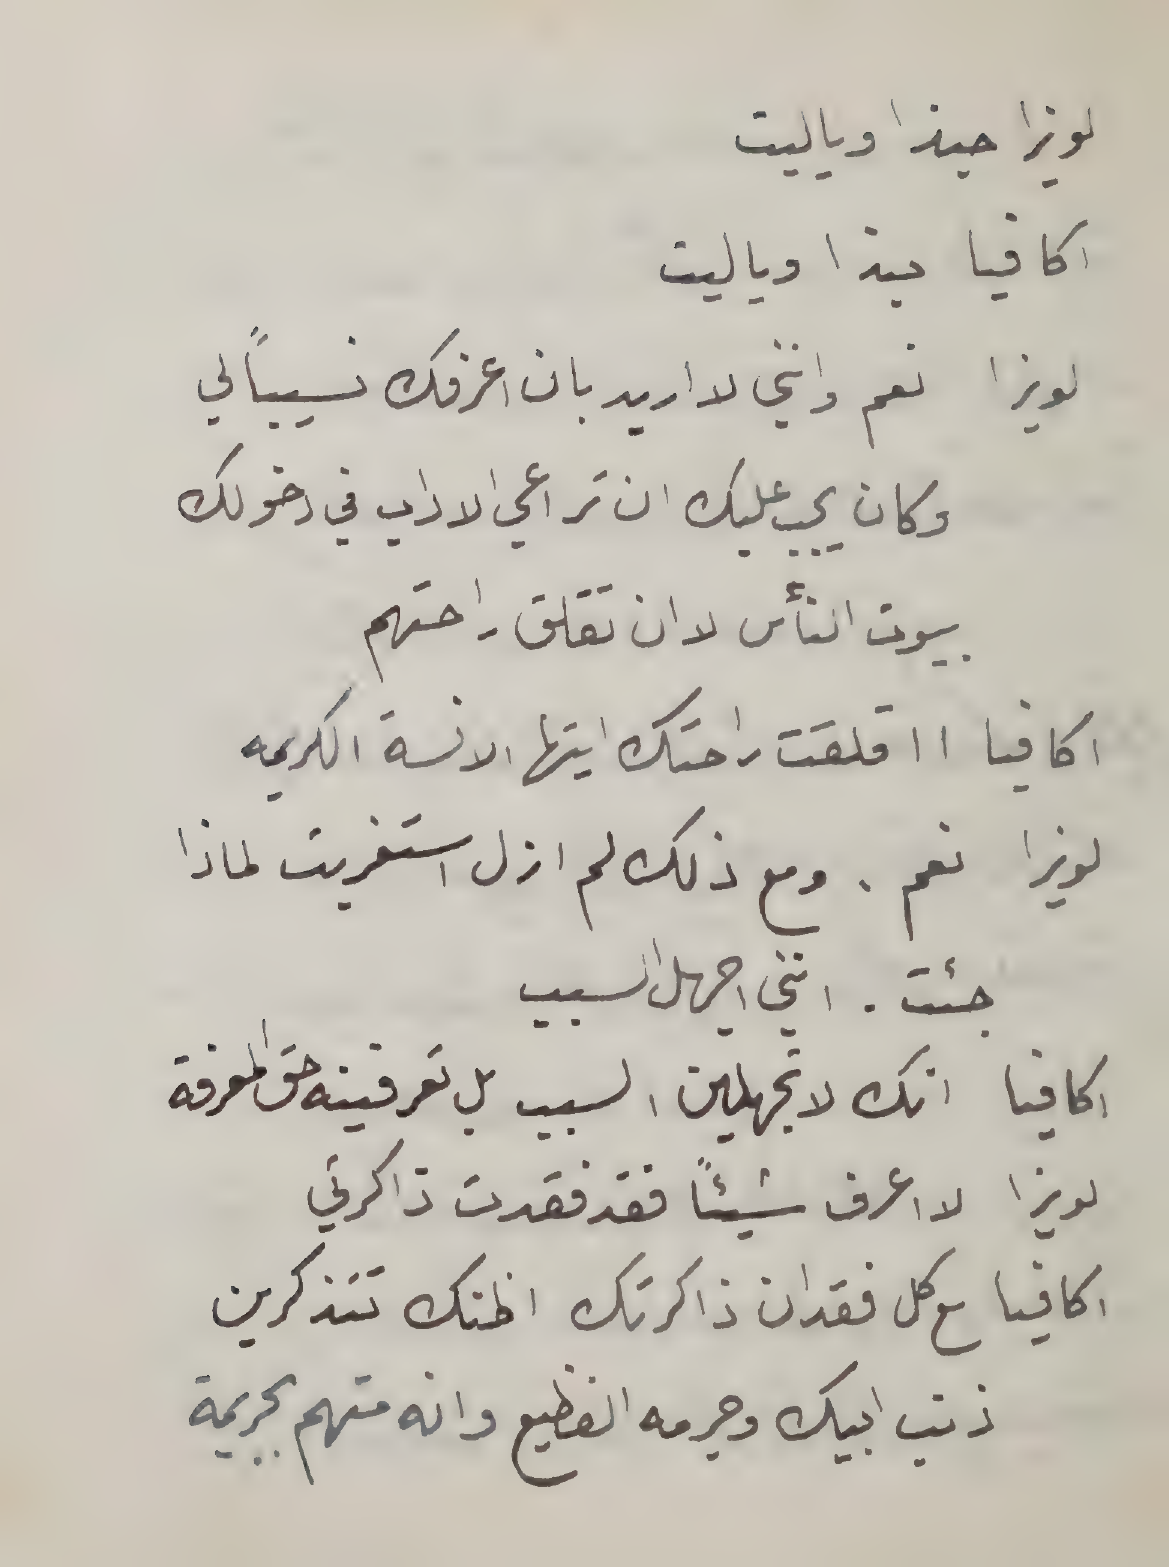 لويزا حبذا وياليت
اكافيا حبذا وياليت
لويزا نعم وانني لا اريد بان اعرفك نسيباً لي
وكان يجب عليك ان تراعي الاداب في دخولك
بيوت النأس لا ان تقلق راحتهم
اكافيا ااقلقت راحتك ايتها الانسة الكريمه
لويزا نعم . ومع ذلك لم ازل استغربت لماذا
جئت . انني اجهل السبب
اكافيا انك لا تجهلين السبب بل تعرفينه حق المعرفة
لويزا لا اعرف شيئاً فقد فقدت ذاكرتي
اكافيا مع كل فقدان ذاكرتك اظنك تتذكرين
ذنب ابيك وجرمه الفظيع وانه متهم بجريمة